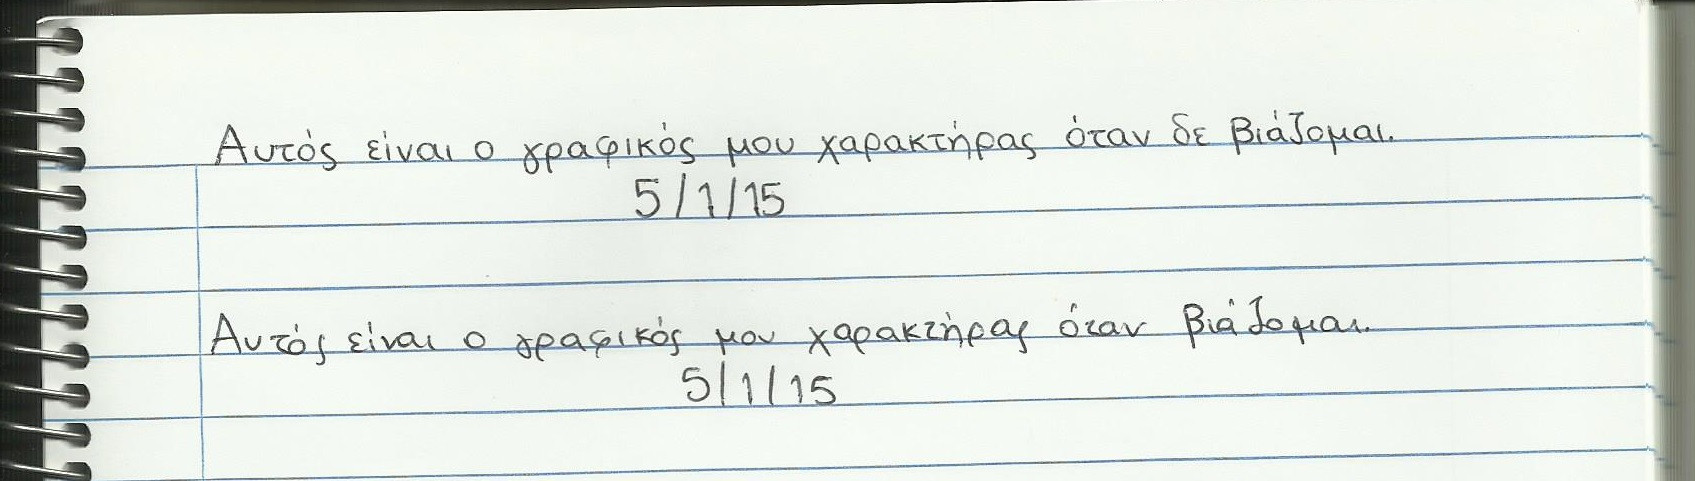 Αυτός είναι ο γραφικός μου χαρακτήρας όταν δε βιάζομαι.
5/1/15
Αυτός είναι ο γραφικός μου χαρακτήρας όταν βιάζομαι.
5/1/15